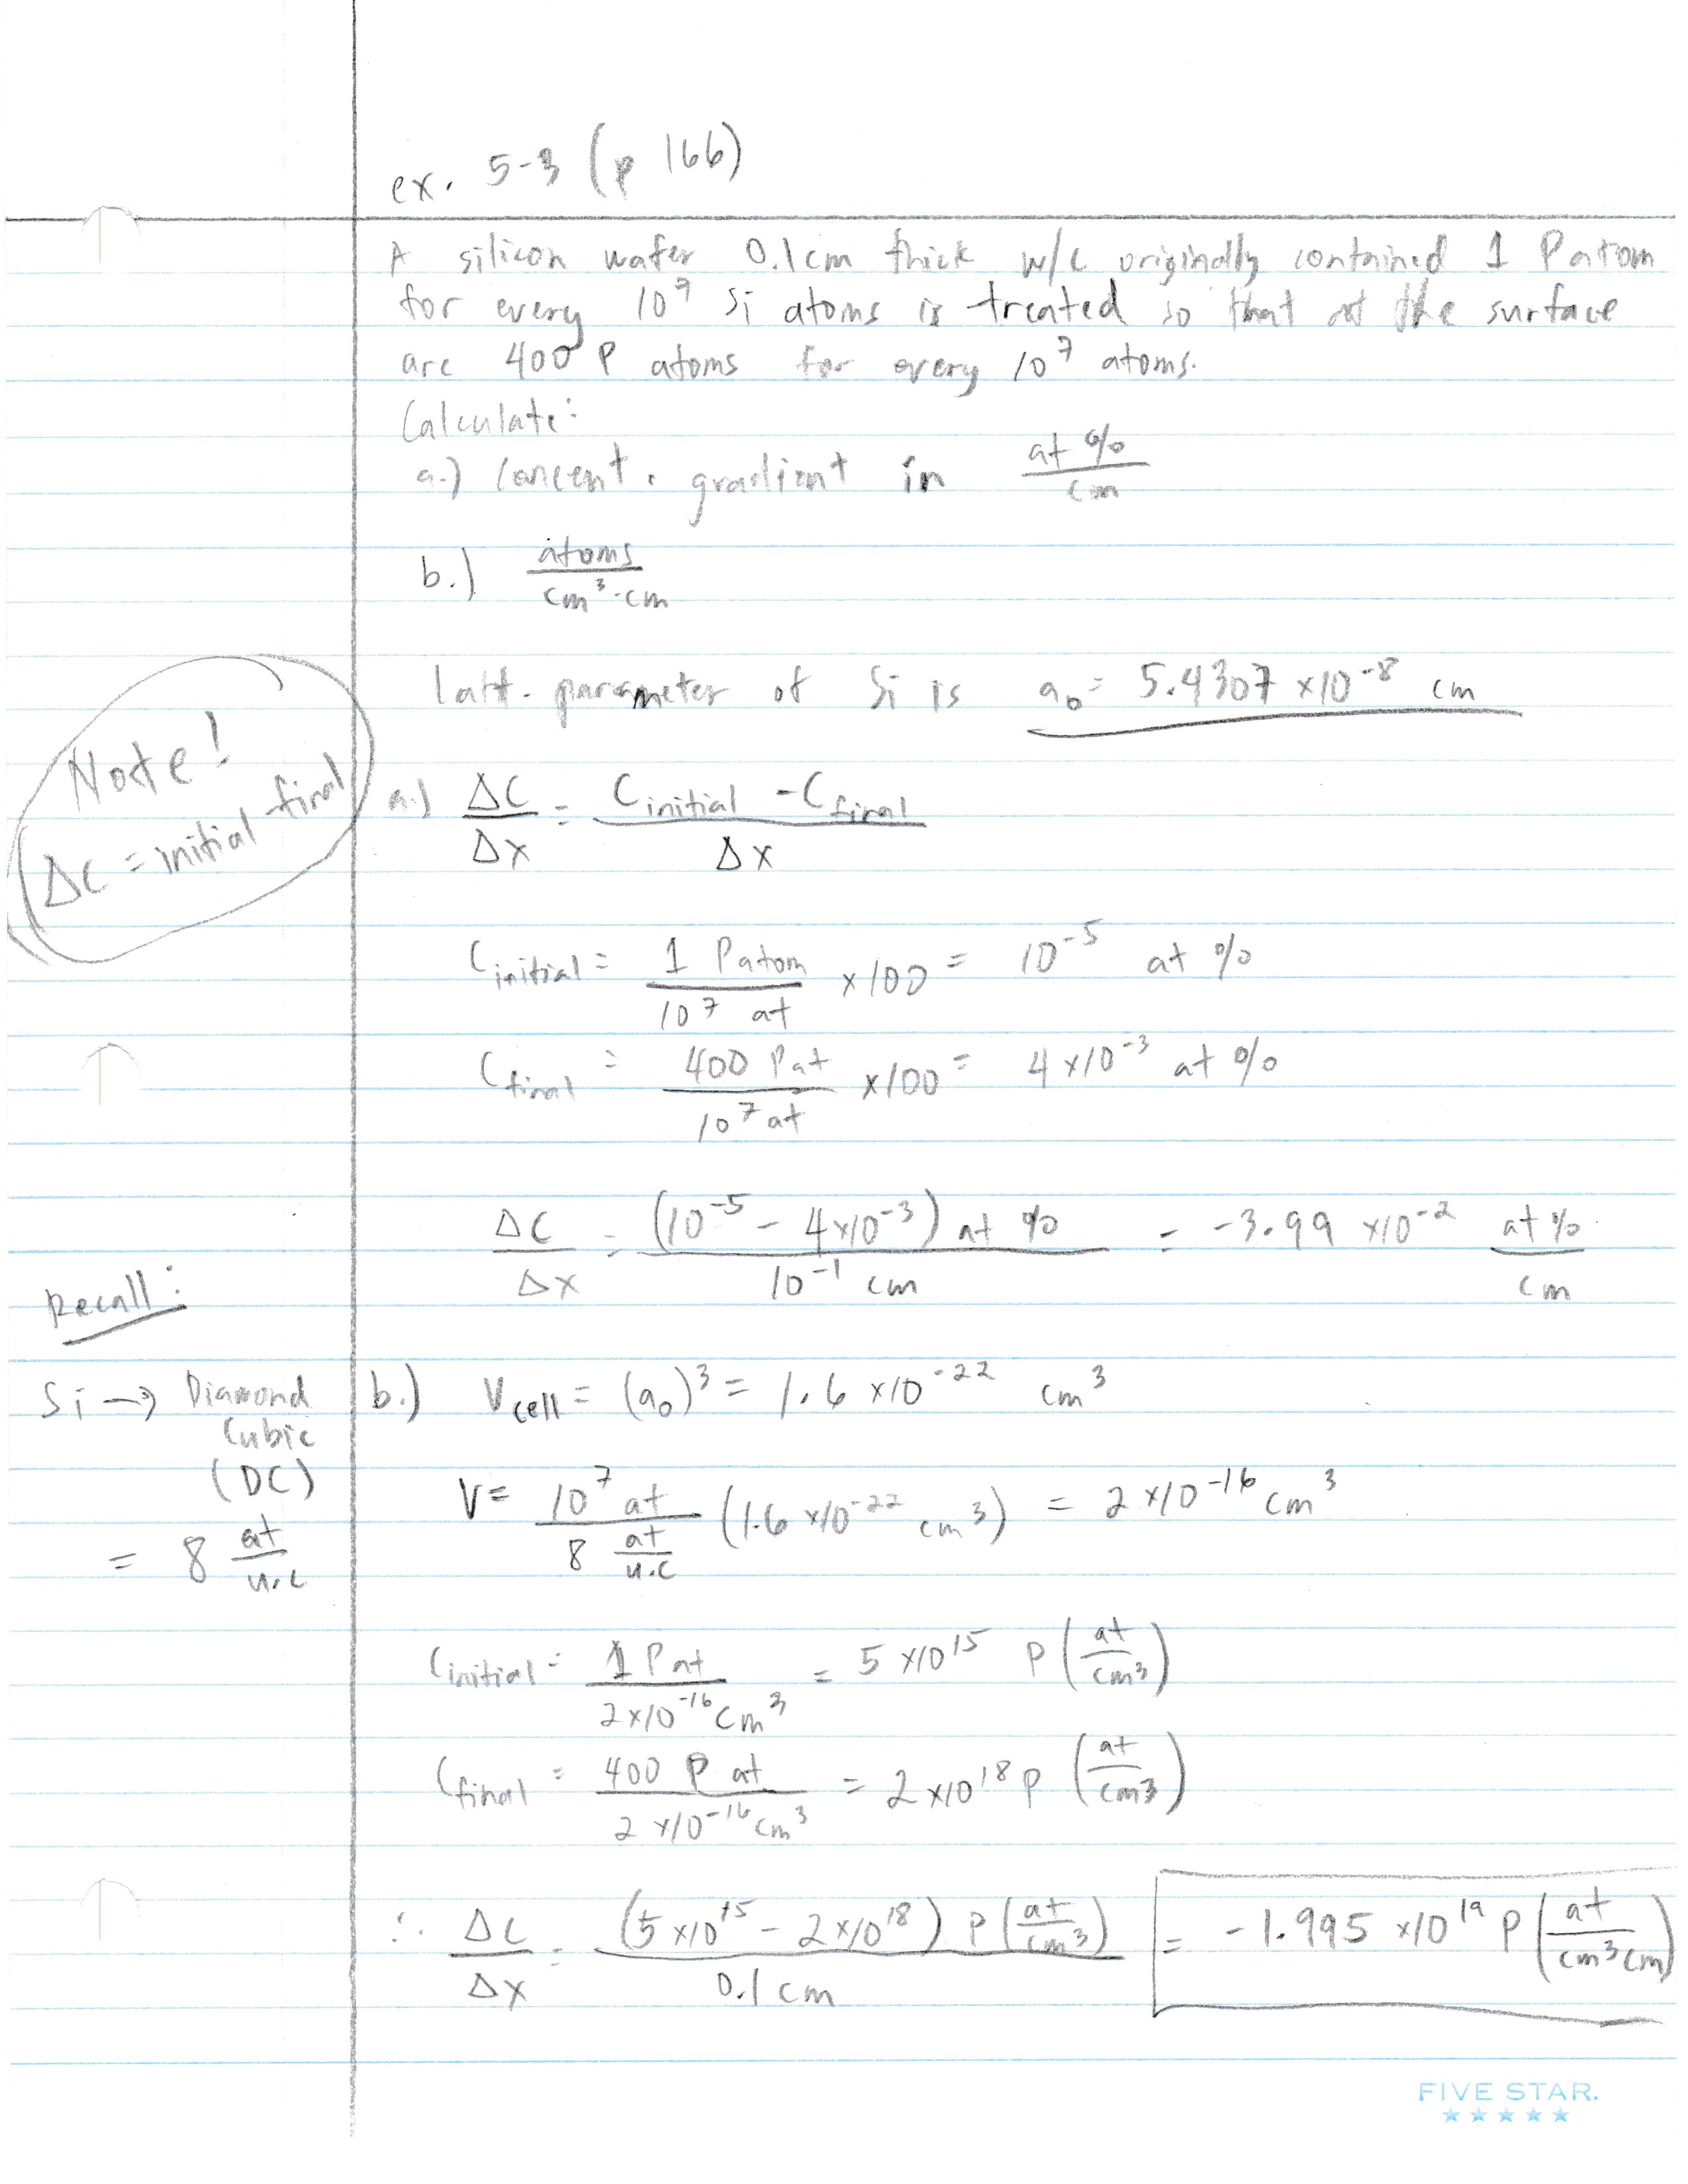 ex. 5-3 (p 166)
A silicon wafer 0.1cm thick w/c originally contained 1 P atom
for every 10^7 Si atoms is treated so that at the surface
are 400 P atoms for every 10^7 atoms.
Calculate:
a.) concent. gradient in at % / cm
b.) atoms / cm^3·cm
latt. parameter of Si is a₀ = 5.4307 x10^-8 cm
Note!
ΔC = initial-final
a.) ΔC/Δx = (C initial - C final)/Δx
C initial = 1 P atom / 10^7 at x100 = 10^-5 at %
C final = 400 P at / 10^7 at x100 = 4 x10^-3 at %
ΔC/Δx = (10^-5 - 4x10^-3) at % / 10^-1 cm = -3.99 x10^-2 at % / cm
Recall:
Si → Diamond
Cubic
(DC)
= 8 at/u.c
b.) V cell = (a₀)^3 = 1.6 x10^-22 cm^3
V = 10^7 at / 8 at/u.c (1.6 x10^-22 cm^3) = 2 x10^-16 cm^3
C initial = 1 P at / 2x10^-16 cm^3 = 5 x10^15 P (at/cm^3)
C final = 400 P at / 2 x10^-16 cm^3 = 2 x10^18 P (at/cm^3)
∴ ΔC/Δx = (5 x10^15 - 2 x10^18) P (at/cm^3) / 0.1 cm = -1.995 x10^19 P (at/cm^3 cm)
FIVE STAR.